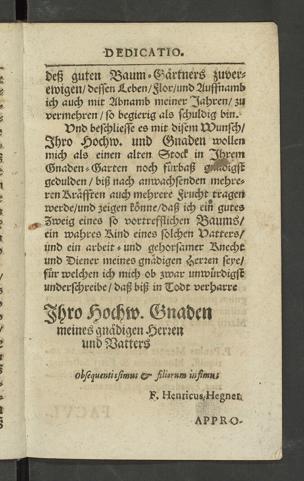 DEDICATIO.
deß guten Baum-Gärtners zuver-
ewigen/ dessen Leben/ Flor/ und Auffnamb
ich auch mit Abnamb meiner Jahren/ zu
vermehren/ so begierig als schuldig bin.
Und beschliesse es mit disem Wunsch/
Ihro Hochw. und Gnaden wollen
mich als einen alten Stock in Ihrem
Gnaden-Garten noch fürbaß gnädigst
gedulden/ biß nach anwachsenden mehre-
ren Kräfften auch mehrere Frucht tragen
werde/ und zeigen könne/ daß ich ein gutes
Zweig eines so vortrefflichen Baums/
ein wahres Kind eines solchen Vatters/
und ein arbeit- und gehorsamer Knecht
und Diener meines gnädigen Herren seye/
für welchen ich mich ob zwar unwürdigst
underschreibe/ daß biß in Todt verharre
Ihro Hochw. Gnaden
meines gnädigen Herren
und Vatters
obsequentissimus & filiorum infimus
F. Henricus Hegner.
APPRO-